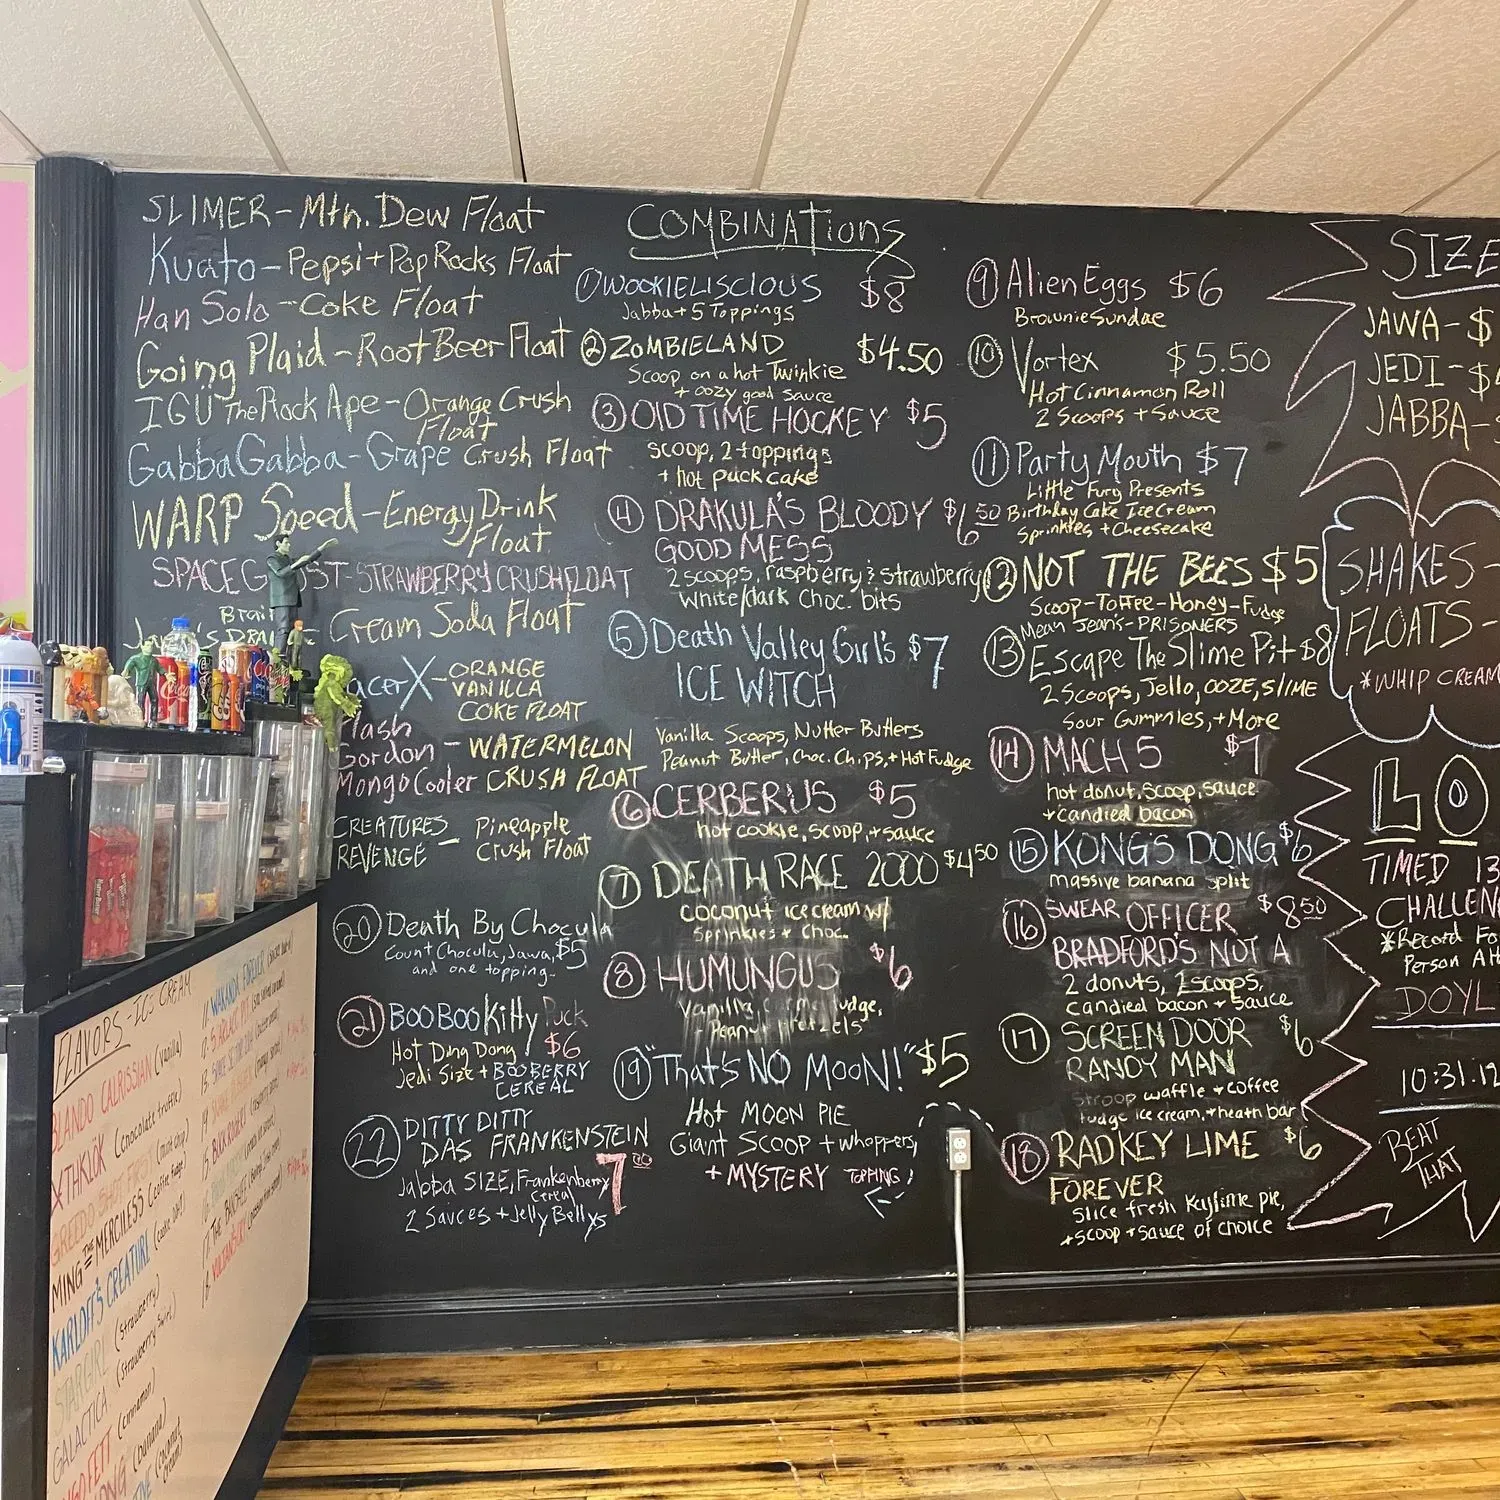 SLIMER - Mtn. Dew Float
Kuato - Pepsi + Pop Rocks Float
Han Solo - Coke Float
Going Plaid - Root Beer Float
IGÜ The Rock Ape - Orange Crush
Float
Gabba Gabba - Grape Crush Float
WARP Speed - Energy Drink
Float
STRAWBERRY CRUSH FLOAT
Cream Soda Float
acer X - ORANGE
VANILLA
COKE FLOAT
Gordon - WATERMELON
Mongo Cooler CRUSH FLOAT
CREATURES - Pineapple
REVENGE Crush Float
20 Death By Chocula
Count Chocula, Jawa, $5
and one topping
21 BOO BOO Kitty Fuck
Hot Ding Dong $6
Jedi Size + BOOBERRY
CEREAL
22 DITTY DITTY
DAS FRANKENSTEIN
Jabba SIZE, Frankenberry 7.00
Cereal
2 Sauces + Jelly Bellys
COMBINATIONS
1 WOOKIELISCIOUS $8
Jabba + 5 Toppings
2 ZOMBIELAND $4.50
Scoop on a hot Twinkie
+ oozy good sauce
3 OLD TIME HOCKEY $5
scoop, 2 toppings
+ hot puck cake
4 DRAKULA'S BLOODY $6.50
GOOD MESS
2 scoops, raspberry & strawberry
White/dark Choc. bits
5 Death Valley Girl's $7
ICE WITCH
Vanilla Scoops, Nutter Butters
Peanut Butter, Choc. Chips, + Hot Fudge
6 CERBERUS $5
hot cookie, scoop, + sauce
7 DEATH RACE 2000 $4.50
coconut ice cream w/
Sprinkles + Choc.
8 HUMUNGUS $6
19 "That's NO MOON!" $5
Hot MOON PIE
Giant Scoop + whoppers,
+ MYSTERY TOPPING!
9 Alien Eggs $6
Brownie Sundae
10 Vortex $5.50
Hot Cinnamon Roll
2 Scoops + Sauce
11 Party Mouth $7
Little Fury Presents
Birthday Cake Ice Cream
Sprinkles + Cheesecake
12 NOT THE BEES $5
Scoop - Toffee - Honey - Fudge
Mean Jeans - PRISONERS
13 Escape The Slime Pit $8
2 Scoops, Jello, OOZE, SLIME
Sour Gummies, + More
14 MACH 5 $7
hot donut, scoop, sauce
+ candied bacon
15 KONG'S DONG $6
massive banana split
16 SWEAR OFFICER $8.50
BRADFORD'S NOT A
2 donuts, 2 scoops,
candied bacon + sauce
17 SCREEN DOOR $6
RANDY MAN
Stroop waffle + coffee
fudge ice cream, + heath bar
18 RADKEY LIME $6
FOREVER
Slice fresh Keylime pie,
+ scoop + sauce of choice
SIZE
JAWA - $
JEDI - $
JABBA -
SHAKES -
FLOATS -
*WHIP CREAM
LO
TIMED 13
CHALLEN
*Record Fo
Person At
DOYL
10:31.19
BEAT
THAT
FLAVORS - ICE CREAM
BLANDO CALRISSIAN (vanilla)
(chocolate truffle)
GREEDO SHOT FIRST
MING THE MERCILESS (coffee fudge)
KARLOFF'S CREATURE
STARGIRL (strawberry)
GALACTICA
(cinnamon)
(banana)